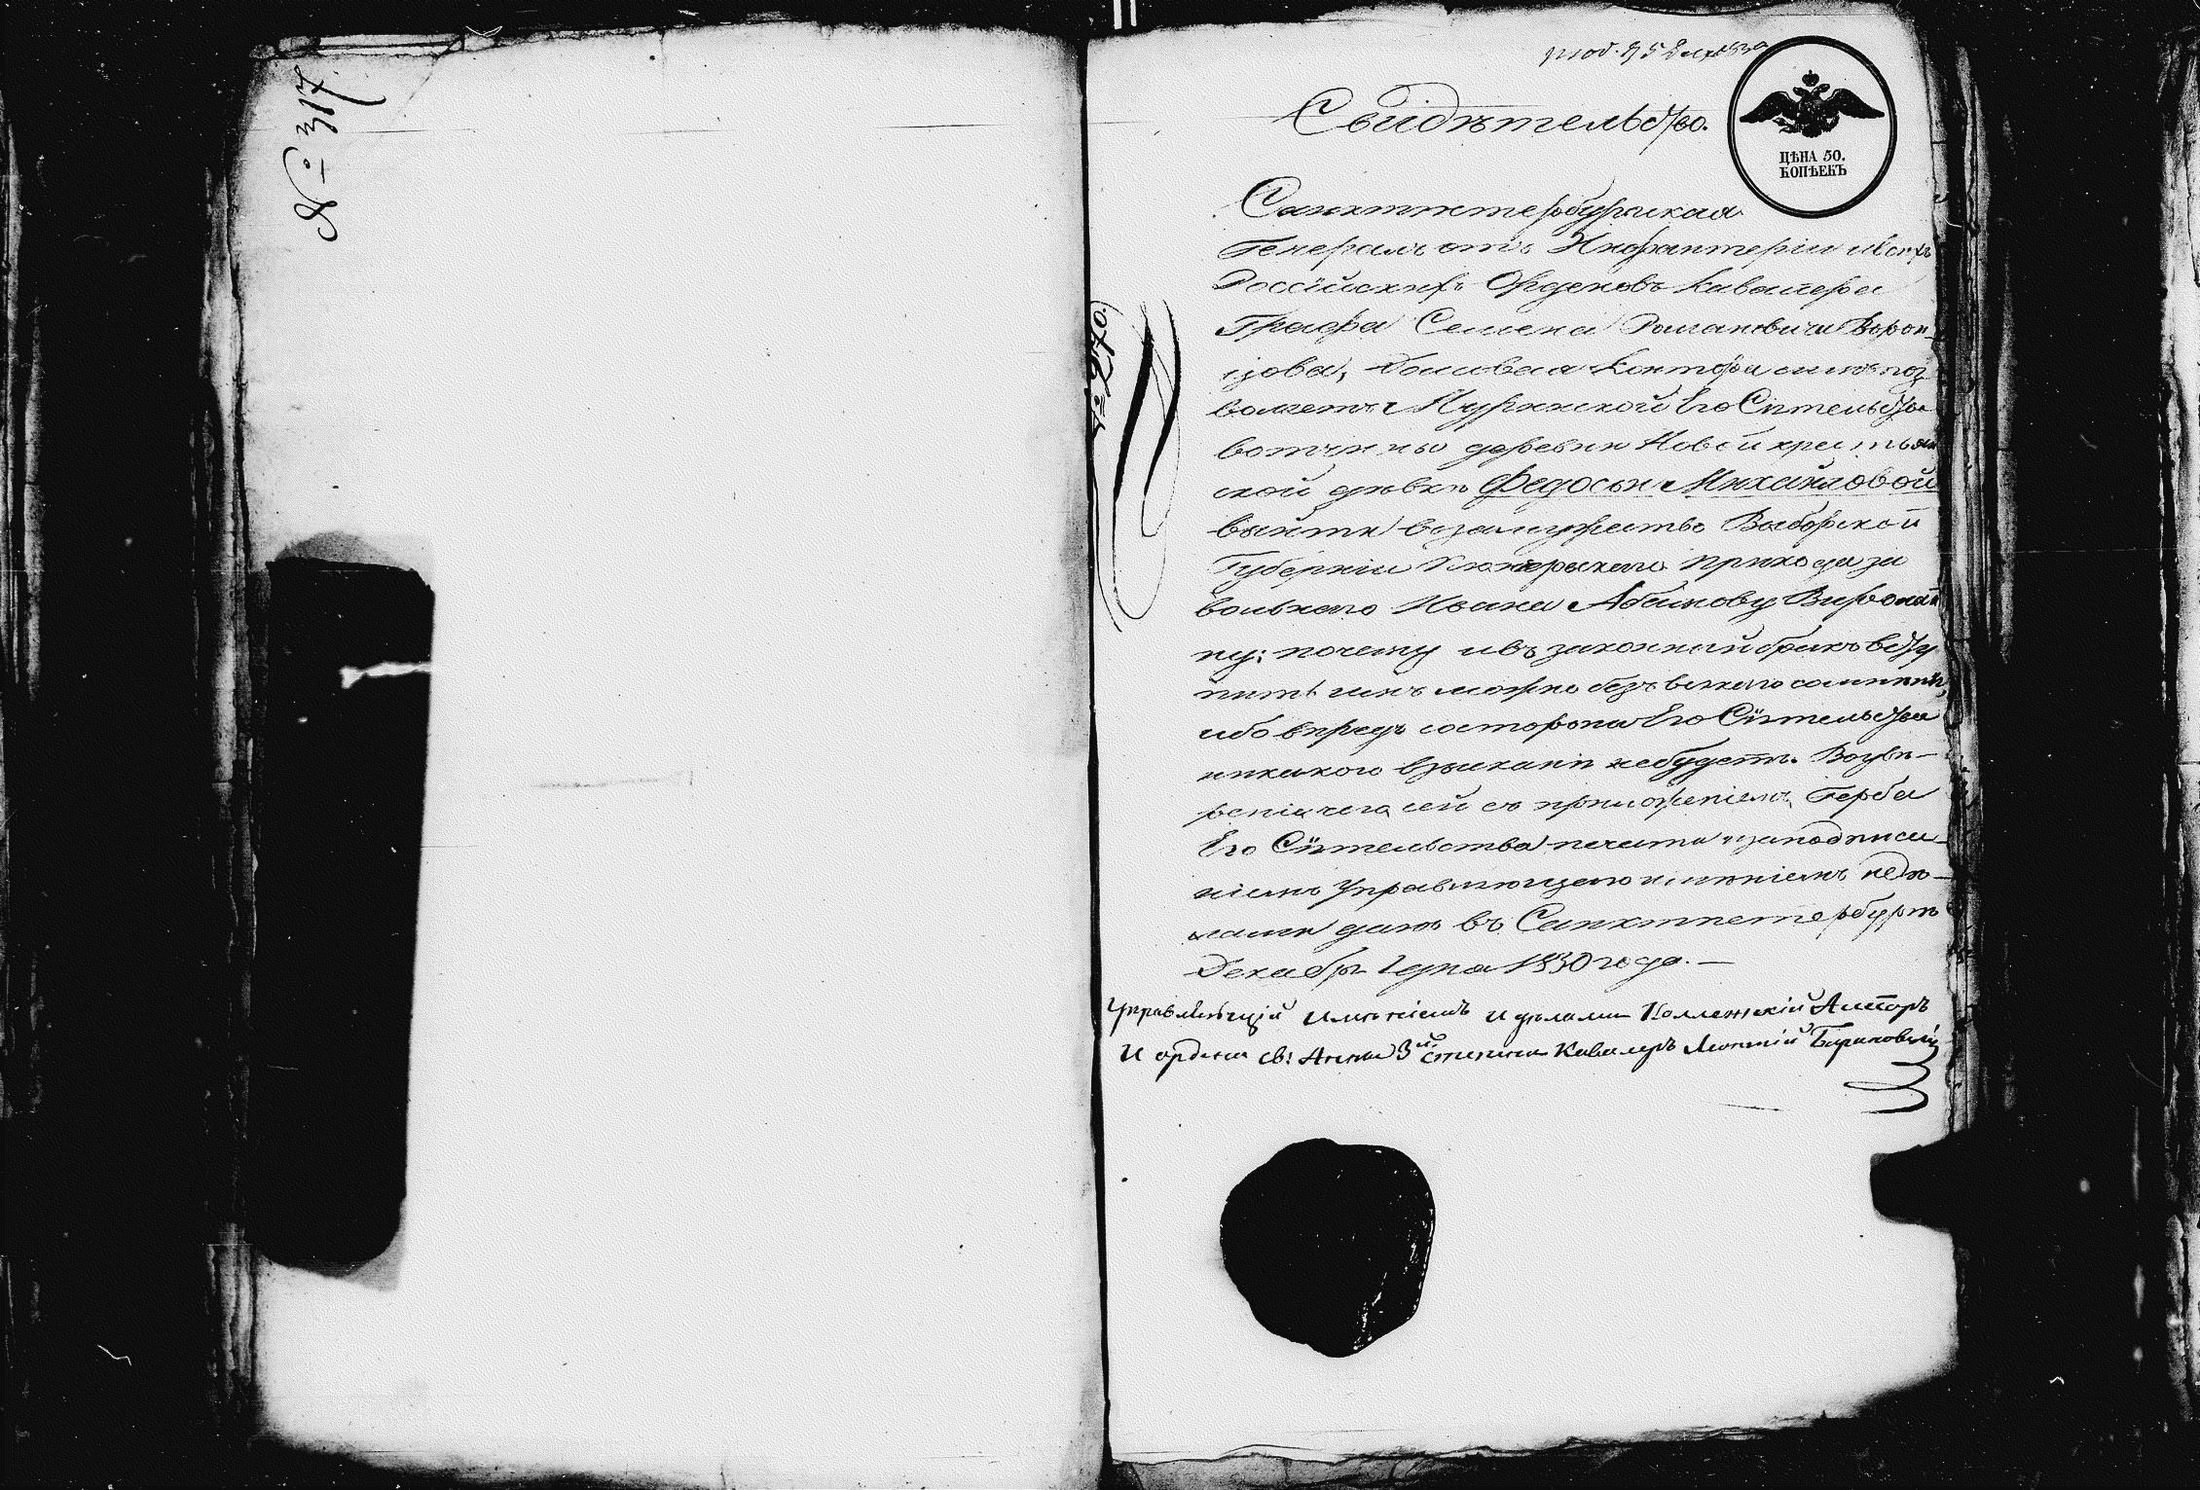 № 317
Свидѣтельство.
ЦѢНА 50.
КОПѢЕКЪ
№ 270
Санктпетербургская
Генерала отъ Инфантеріи и всѣхъ
Россійскихъ Орденовъ Кавалера
Графа Семена Романовича Ворон-
цова, Домовая Контора симъ поз
воляетъ Муринской Его Сіятельства
вотчины деревни Новой крестьян
ской дѣвкѣ Федосьи Михайловой
выйти взамужество Выборской
Губерніи прихода за
вольнаго Ивана
ну; почему и въ законный бракъ всту
пить имъ можно безъ всякаго сомнѣнія,
ибо впредь со стороны Его Сіятельства
никакого взысканія небудетъ. Воувѣ-
реніе чего сей съ приложеніемъ Герба
Его Сіятельства печати и заподписа-
ніемъ Управляющаго имѣніемъ и дѣ-
лами данъ въ Санктпетербургѣ
Декабря 1830 года. —
Управляющій имѣніемъ и дѣлами Коллежскій
и ордена св: Анны 3й степени Кавалеръ